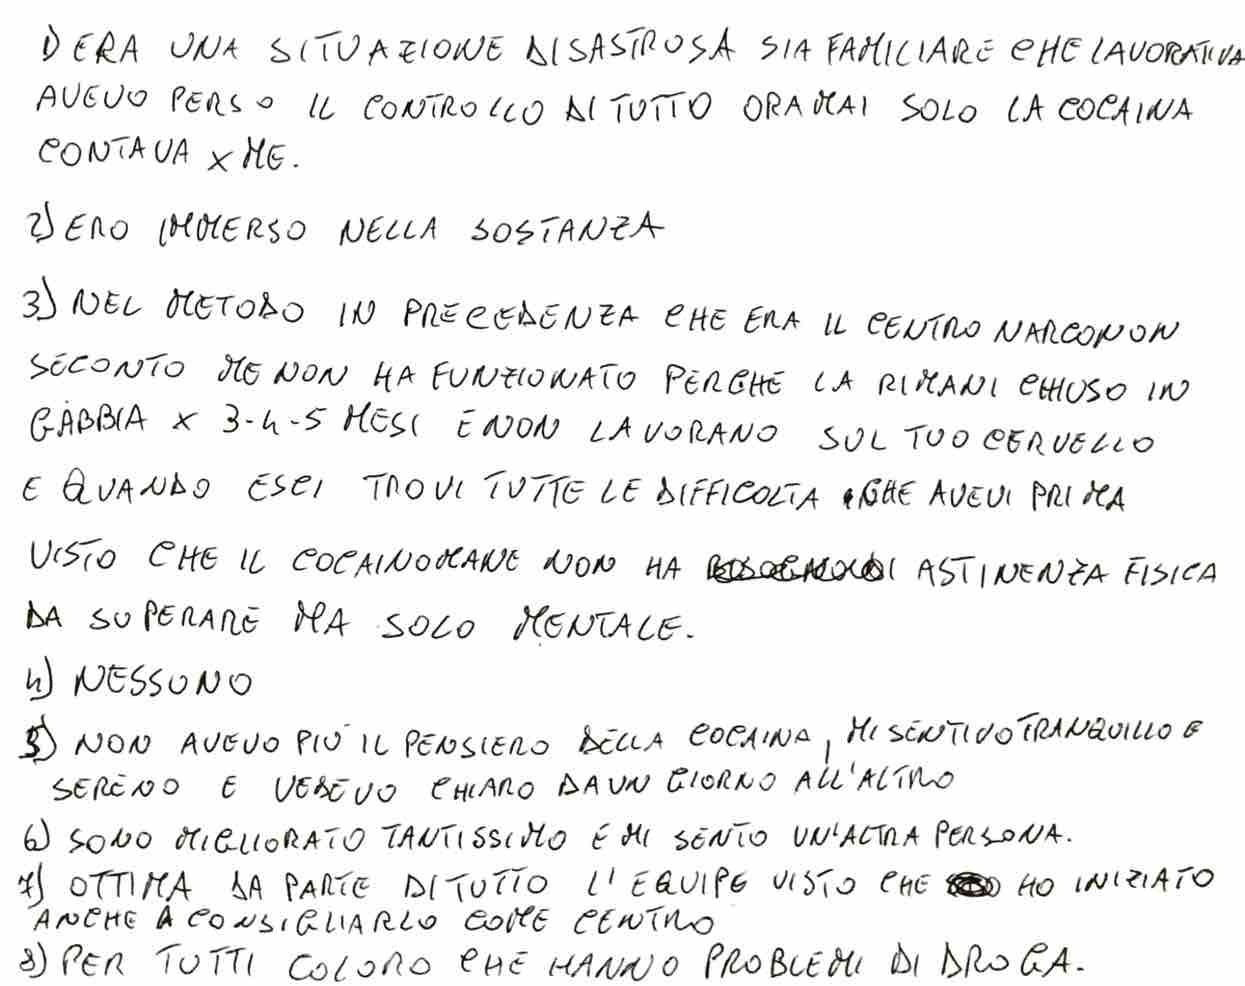 1) ERA UNA SITUAZIONE DISASTROSA SIA FAMILIARE CHE LAVORATIVA
AVEVO PERSO IL CONTROLLO DI TUTTO ORAMAI SOLO LA COCAINA
CONTAVA X ME.
2) ERO IMMERSO NELLA SOSTANZA
3) NEL METODO IN PRECEDENZA CHE ERA IL CENTRO NARCONON
SECONTO ME NON HA FUNZIONATO PERCHÉ LA RIMANI CHIUSO IN
GABBIA X 3-4-5 MESI E NON LAVORANO SUL TUO CERVELLO
E QUANDO ESCI TROVI TUTTE LE DIFFICOLTA CHE AVEVI PRIMA
VISTO CHE IL COCAINOMANE NON HA DI ASTINENZA FISICA
DA SUPERARE MA SOLO MENTALE.
4) NESSUNO
5) NON AVEVO PIÙ IL PENSIERO DELLA COCAINA, MI SENTIVO TRANQUILLO E
SERENO E VEDEVO CHIARO DA UN GIORNO ALL'ALTRO
6) SONO MIGLIORATO TANTISSIMO E MI SENTO UN'ALTRA PERSONA.
7) OTTIMA DA PARTE DI TUTTO L'EQUIPE VISTO CHE HO INIZIATO
ANCHE A CONSIGLIARLO COME CENTRO
8) PER TUTTI COLORO CHE HANNO PROBLEMI DI DROGA.